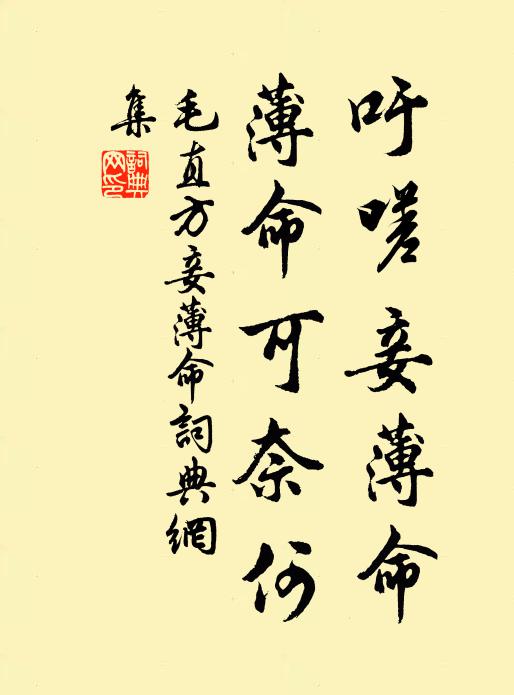 吁嗟妾薄命
薄命可奈何
毛直方妾薄命詞典網
集
詞典
网印